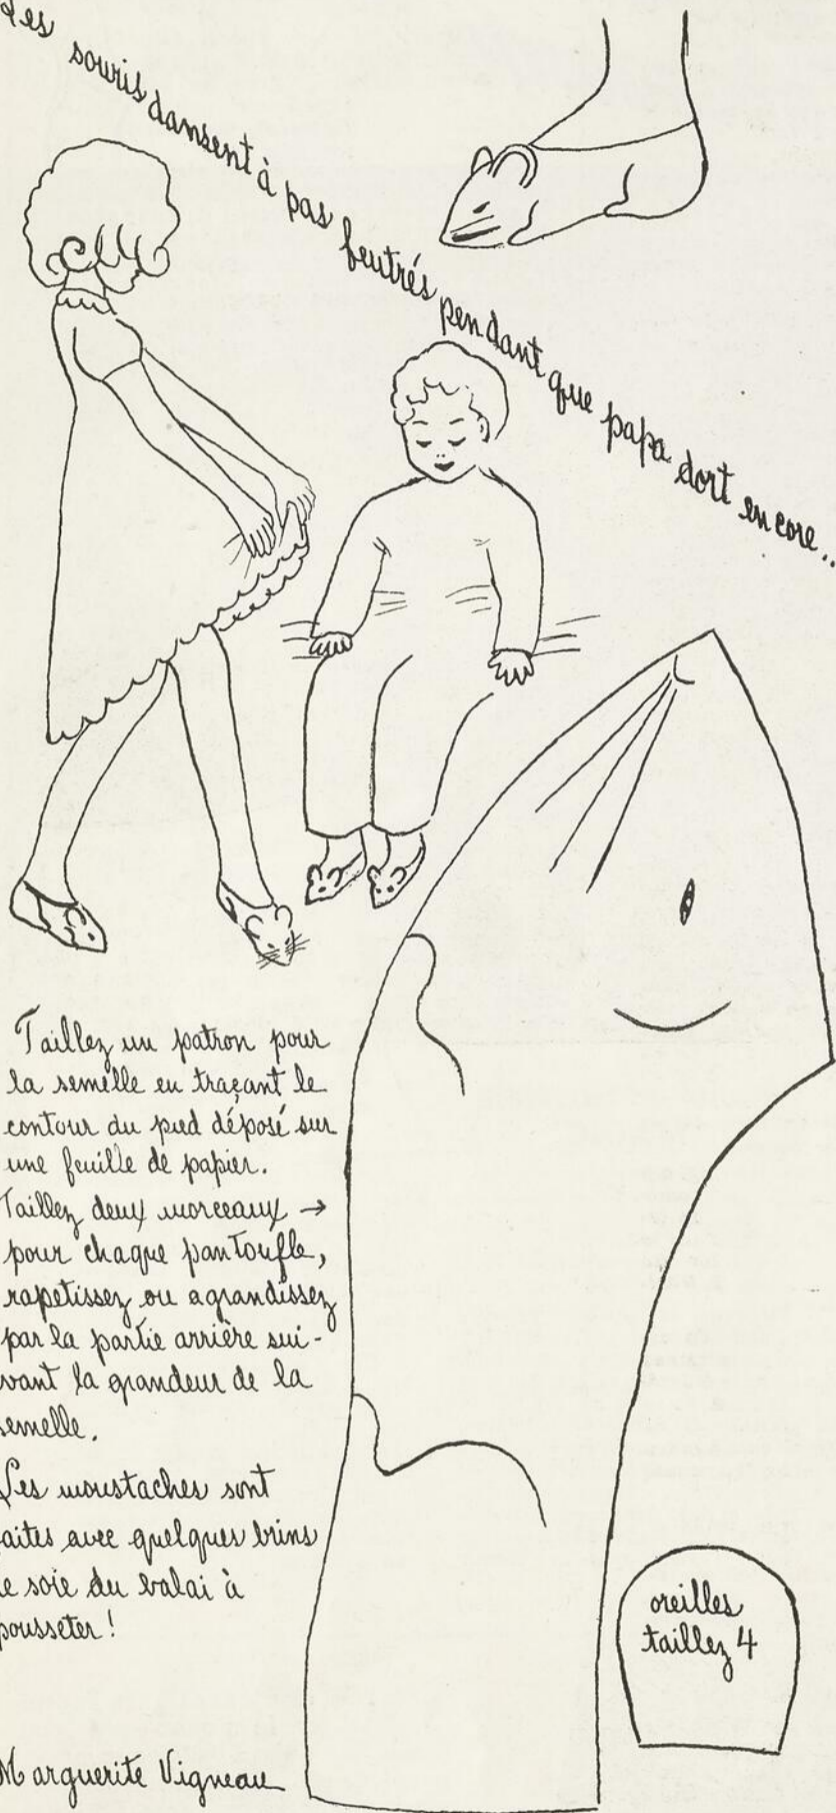 Les souris dansent à pas feutrés pendant que papa dort encore..
Taillez un patron pour
la semelle en traçant le
contour du pied déposé sur
une feuille de papier.
Taillez deux morceaux →
pour chaque pantoufle,
rapetissez ou agrandissez
par la partie arrière sui-
vant la grandeur de la
semelle.
Les moustaches sont
faites avec quelques brins
de soie du balai à
épousseter!
Marguerite Vigneau
oreilles
taillez 4